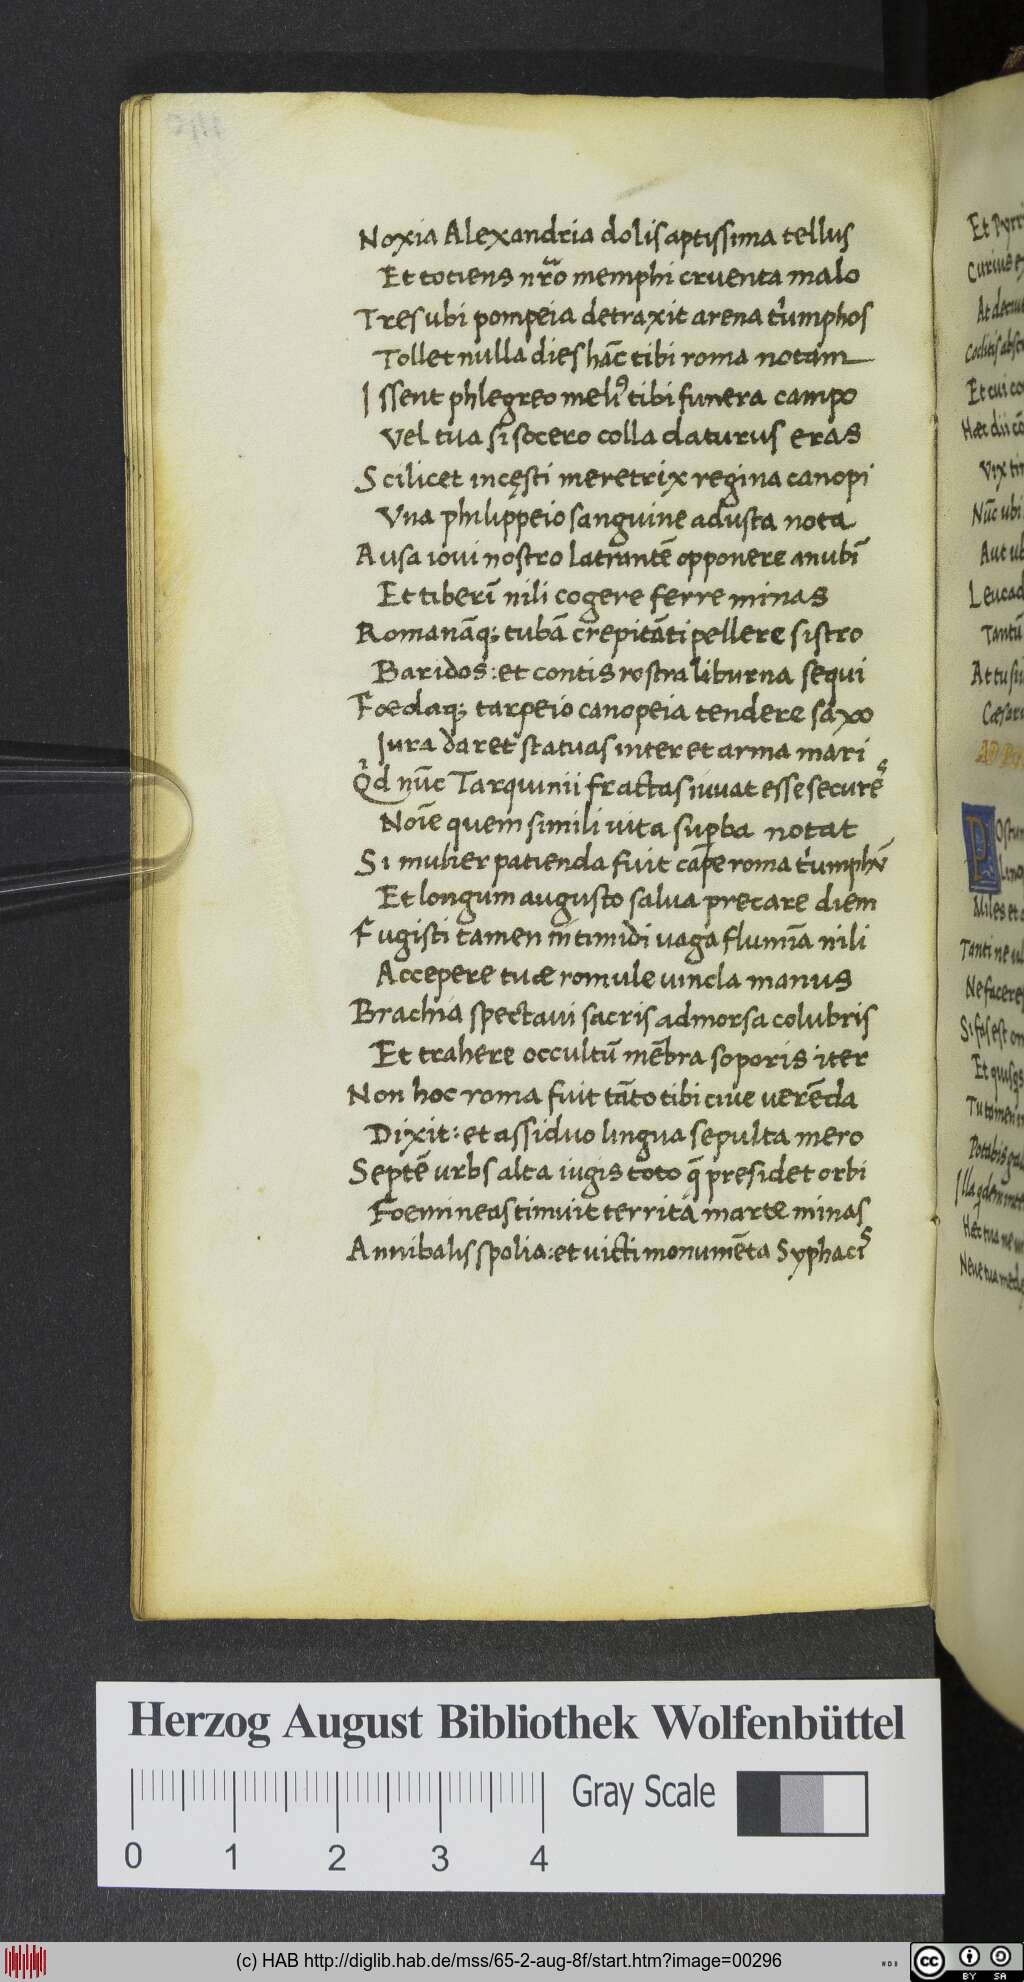 Noxia Alexandria dolis aptissima tellus
Et totiens nr̃o memphi cruenta malo
Tres ubi pompeia detraxit arena tͥumphos
Tollet nulla dies hāc tibi roma notam
Issent phlegreo meliꝰ tibi funera campo
Vel tua si socero colla daturus eras
Scilicet incęsti meretrix regina canopi
Vna philippeio sanguine adusta nota
Ausa ioui nostro latrantē opponere anubī
Et tiberī nili cogere ferre minas
Romanāq; tubā crepitāti pellere sistro
Baridos: et contis rostra liburna sequi
Foedaq; tarpeio canopeia tendere saxo
Jura daret statuas inter et arma mari
Qͥd nūc Tarquinii fractas iuuat esse secures
Noīe quem simili uita supba notat
Si mulier patienda fuit cape roma tͥumphū
Et longum augusto salua precare diem
Fugisti tamen in timidi uaga flumīa nili
Accepere tuæ romule uincla manus
Brachia spectaui sacris admorsa colubris
Et trahere occultū mēbra soporis iter
Non hoc roma fuit tāto tibi ciue uerēda
Dixit: et assiduo lingua sepulta mero
Septē urbs alta iugis toto q̄ presidet orbi
Foemineas timuit territa marte minas
Annibalis spolia: et uicti monumēta Syphacis
Herzog August Bibliothek Wolfenbüttel
Gray Scale
0 1 2 3 4
(c) HAB http://diglib.hab.de/mss/65-2-aug-8f/start.htm?image=00296
cc BY SA